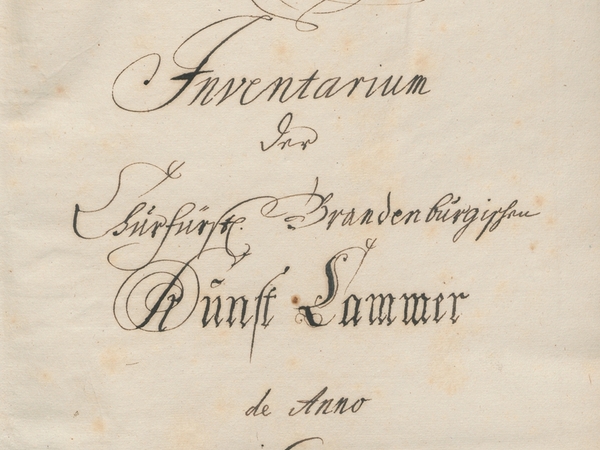 Inventarium
der
Churfürstl. Brandenburgischen
Kunst Cammer
de Anno